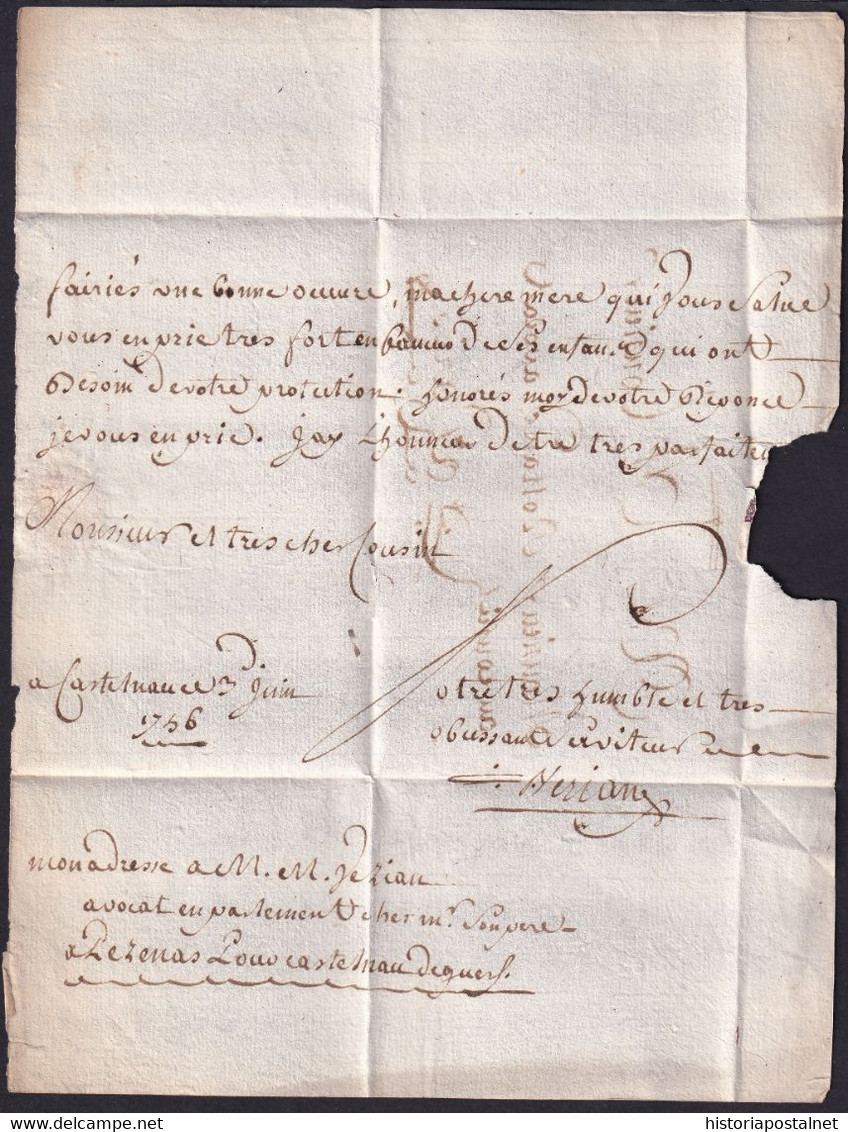 fairiés une bonne oeuvre, ma chere mere qui vous salue
vous en prie tres fort en faveur de ses enfans qui ont
Besoin de votre protection. honorés moy de votre Réponce
je vous en prie. jay Lhonneur detre tres parfaitem
Monsieur et tres cher Cousin
a Castelnau ce 3 Juin
1756
otre tres humble et tres
obeissant serviteur
mon adresse a M. M. Jezian
avocat en parlement cher mr. Son pere
a Pezenas Pour castelnau de guers.
historiapostalnet